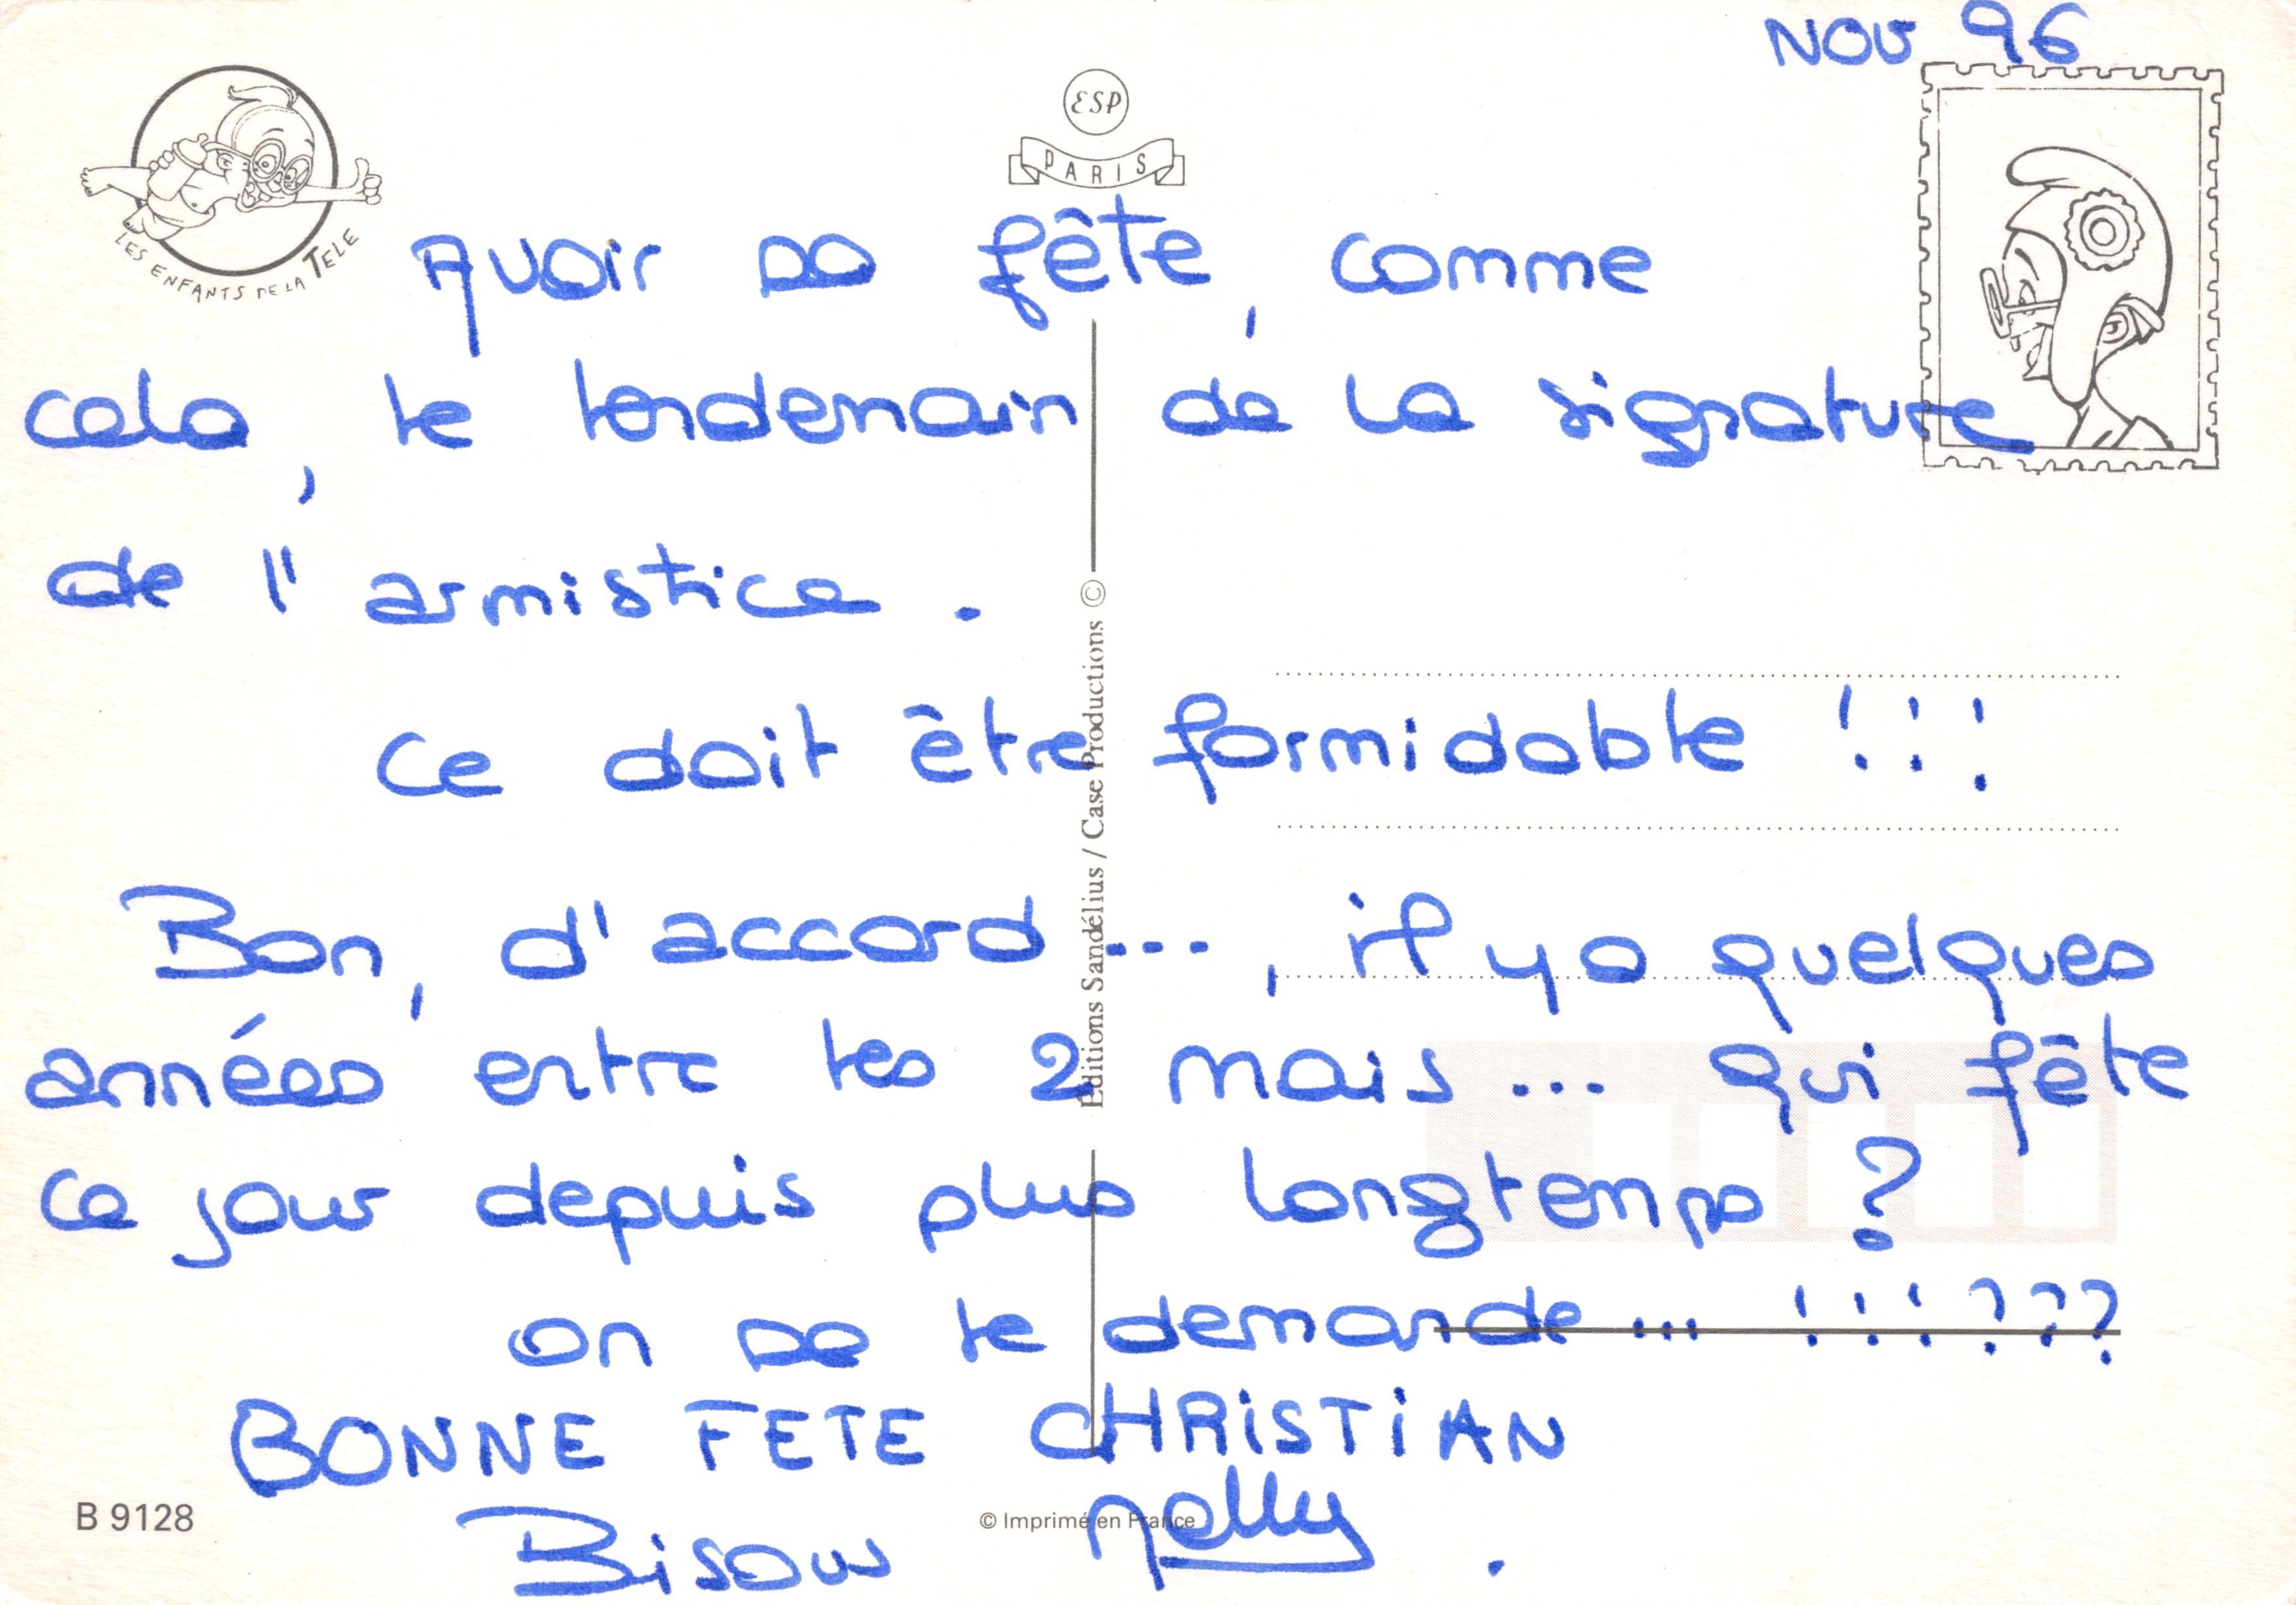 NOV 96
ESP
PARIS
LES ENFANTS DE LA TELE
Avoir sa fête, comme
cela, le lendemain de la signature
de l'armistice.
Ce doit être formidable !!!
Bon, d'accord..., il y a quelques
années entre les 2 mais... qui fête
ce jour depuis plus longtemps ?
on se le demande... !!! ???
BONNE FETE CHRISTIAN
Bisous Nelly.
Editions Sandélius / Case Productions ©
B 9128
© Imprimé en France